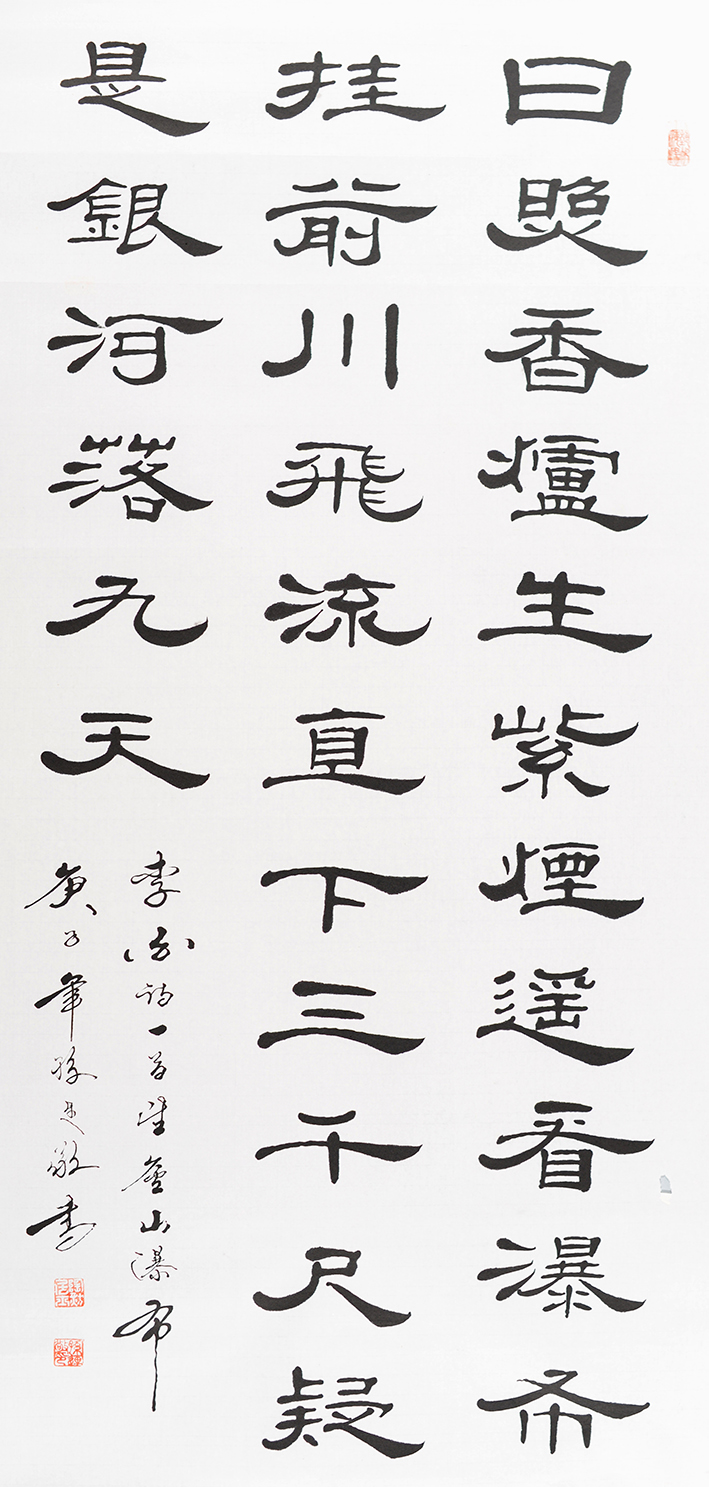 日照香爐生紫煙遥看瀑布
挂前川飛流直下三千尺疑
是銀河落九天
李白诗一首望廬山瀑布
庚子年
敬書